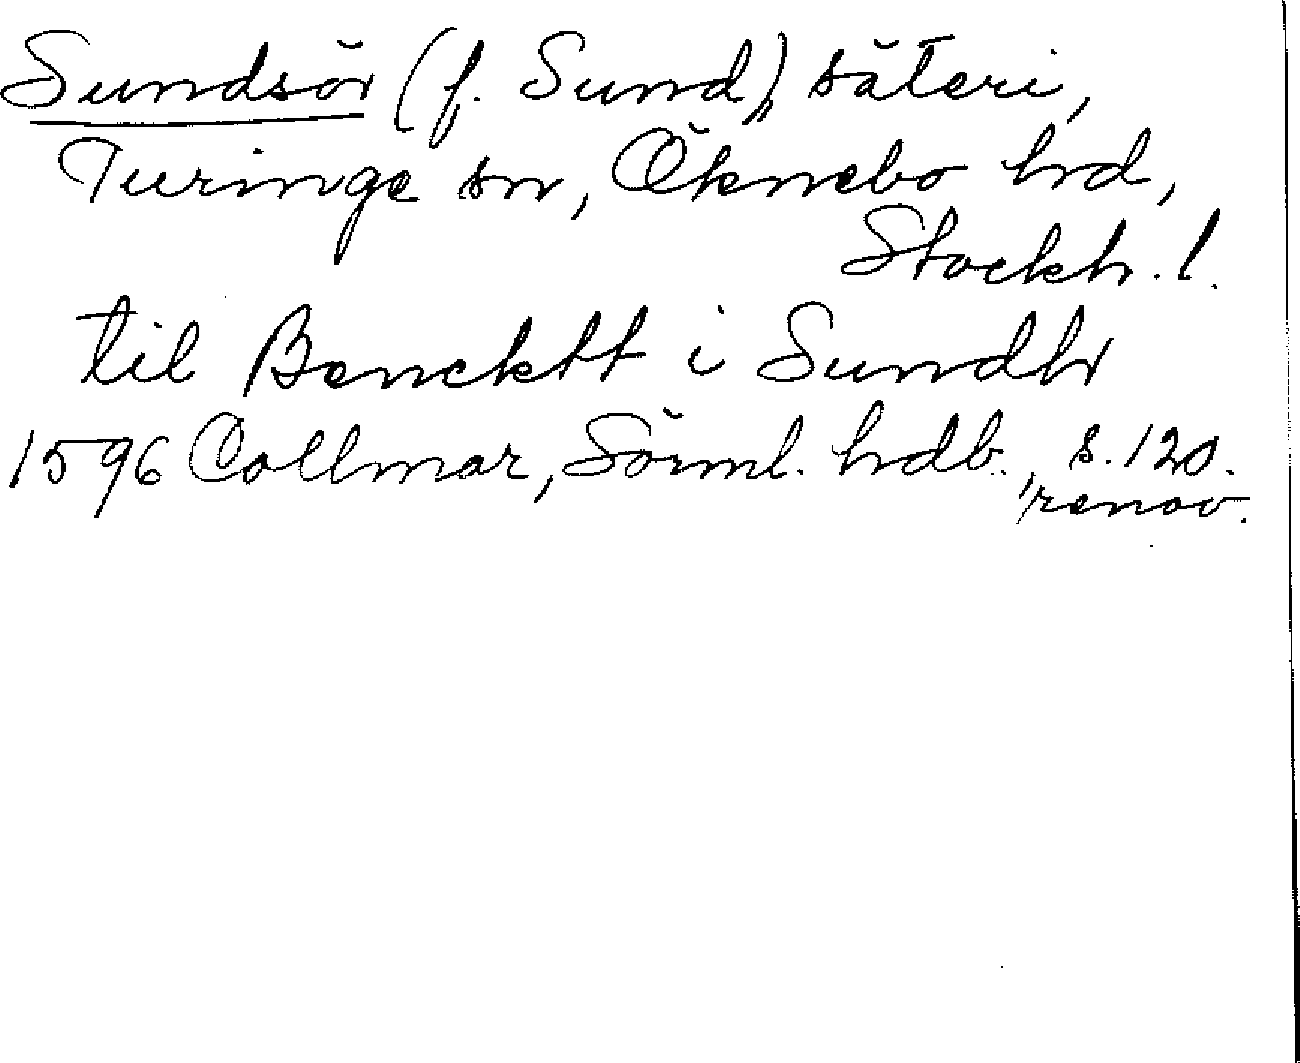 Sundsör (f. Sund), säteri,
Turinge sn, Öknebo hd,
Stockh. l.
til Bencktt i Sundh
1596 Collmar, Sörml. hdb., s. 120.
renov.